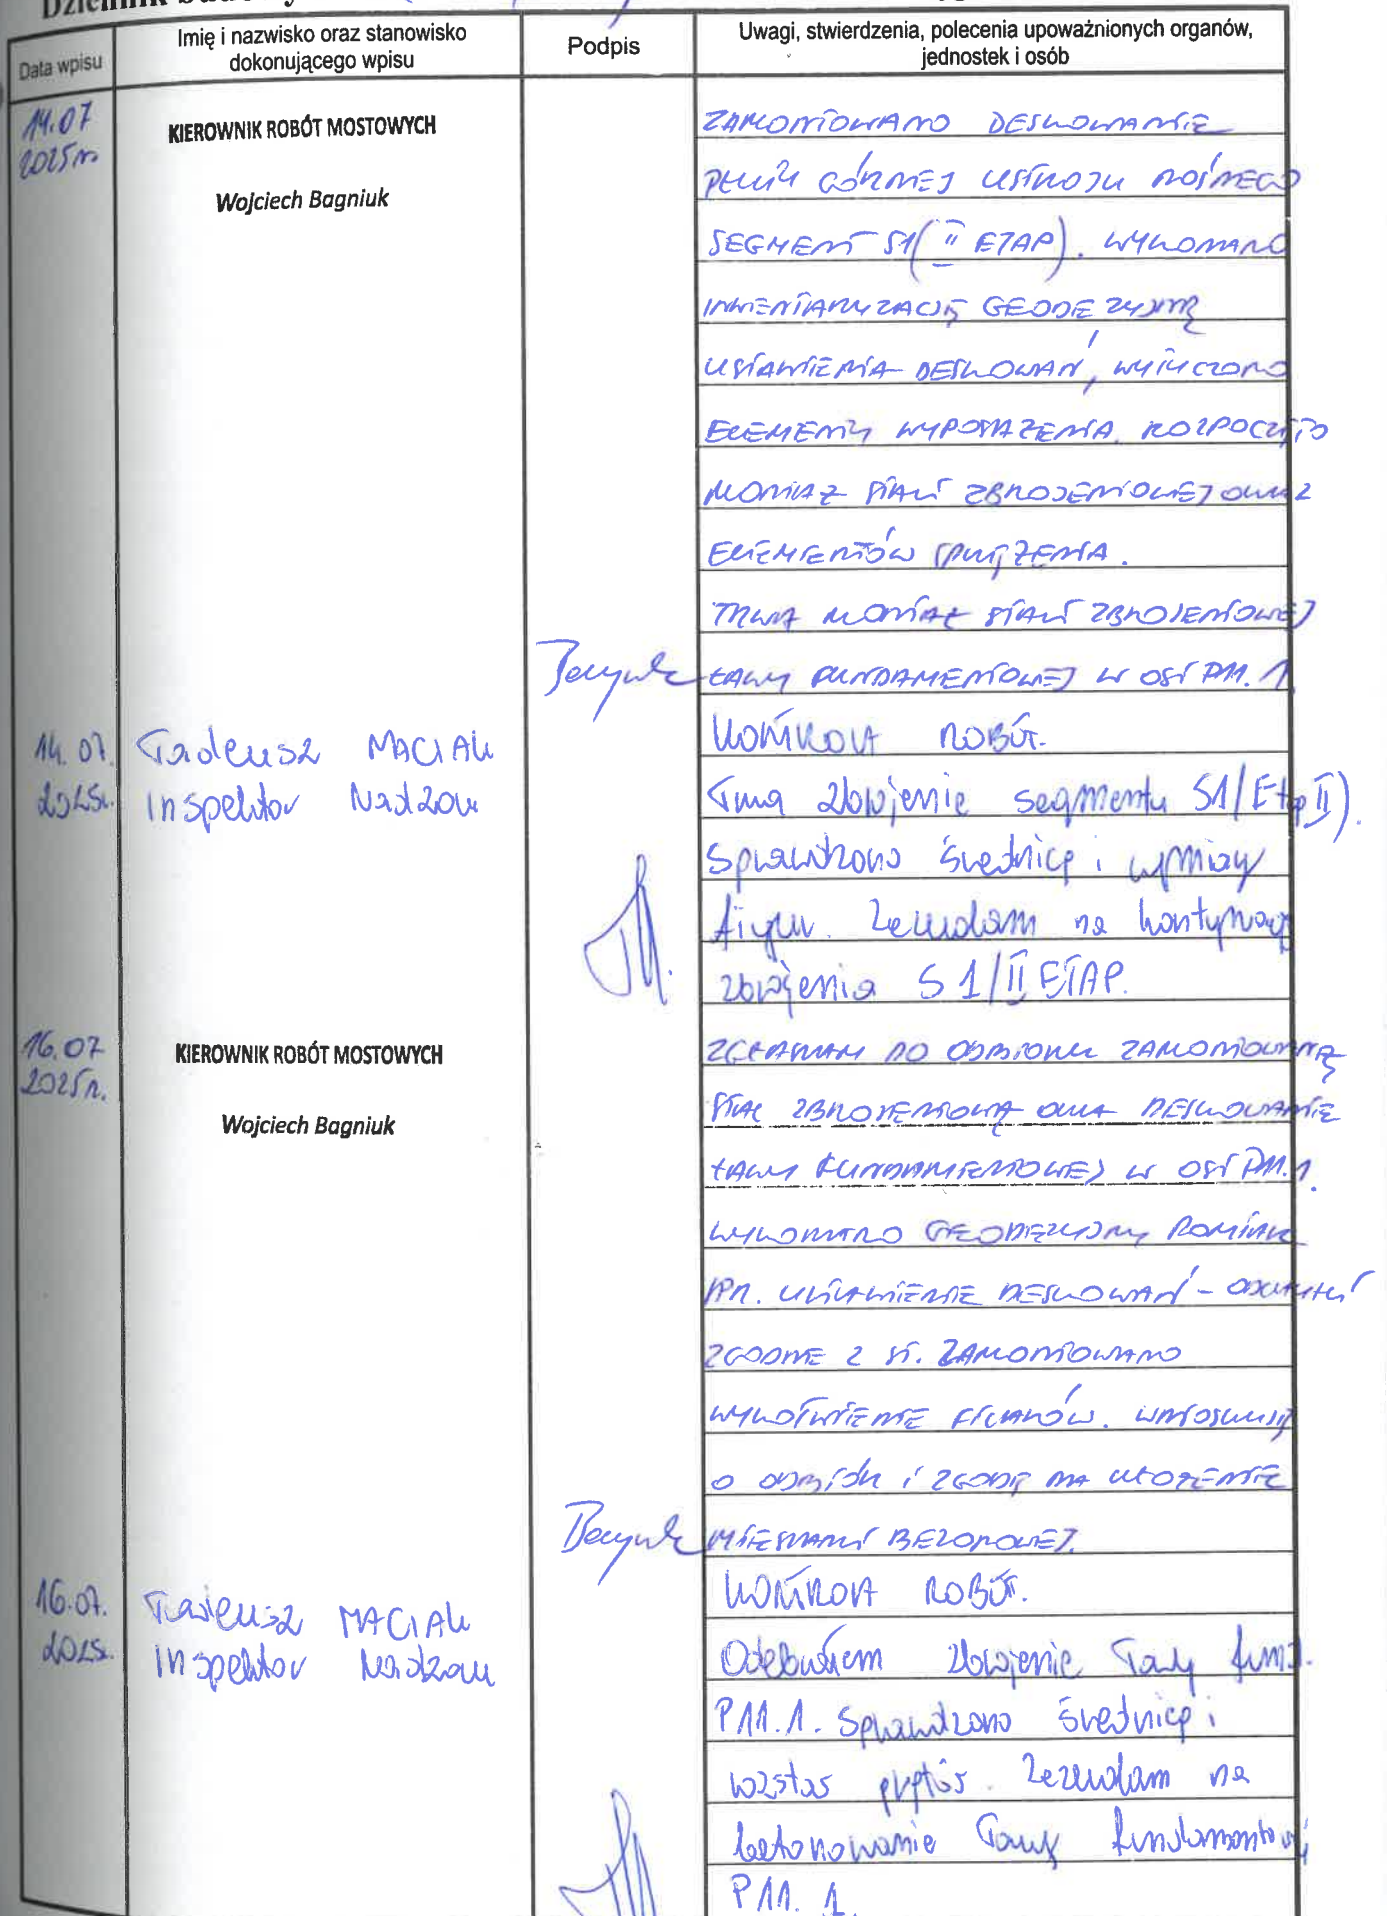 Dziennik budowy
Data wpisu
Imię i nazwisko oraz stanowisko
dokonującego wpisu
Podpis
Uwagi, stwierdzenia, polecenia upoważnionych organów,
jednostek i osób
14.07
2025r.
KIEROWNIK ROBÓT MOSTOWYCH
Wojciech Bagniuk
ZAMONTOWANO DESKOWANIE
PŁYTY GÓRNEJ USTROJU NOŚNEGO
SEGMENT S1 (II ETAP). WYKONANO
INWENTARYZACJĘ GEODEZYJNĄ
USTAWIENIA DESKOWAŃ, WYTYCZONO
ELEMENTY WYPOSAŻENIA. ROZPOCZĘTO
MONTAŻ STALI ZBROJENIOWEJ ORAZ
ELEMENTÓW SPRĘŻENIA.
TRWA MONTAŻ STALI ZBROJENIOWEJ
ŁAWY FUNDAMENTOWEJ W OSI P11.1.
14.07.
2025r.
Tadeusz MACIAK
Inspektor Nadzoru
KONTROLA ROBÓT.
Trwa zbrojenie segmentu S1/Etap II).
Sprawdzono średnicę i wymiary
Zezwalam na
zbrojenia S1/II ETAP.
16.07
2025r.
KIEROWNIK ROBÓT MOSTOWYCH
Wojciech Bagniuk
ZGŁASZAM DO ODBIORU ZAMONTOWANĄ
STAL ZBROJENIOWĄ ORAZ DESKOWANIE
ŁAWY FUNDAMENTOWEJ W OSI P11.1.
WYKONANO GEODEZYJNY POMIAR
USTAWIENIE DESKOWAŃ - ODCHYŁKI
ZGODNE Z ST. ZAMONTOWANO
WYKOTWIENIE FILARÓW. WNIOSKUJĘ
O ODBIÓR I ZGODĘ NA UŁOŻENIE
MIESZANKI BETONOWEJ.
16.07.
2025r.
Tadeusz MACIAK
Inspektor Nadzoru
KONTROLA ROBÓT.
Odebrałem zbrojenie ławy fund.
P11.1. Sprawdzono średnicę i
rozstaw prętów. Zezwalam na
betonowanie ławy fundamentowej
P11.1